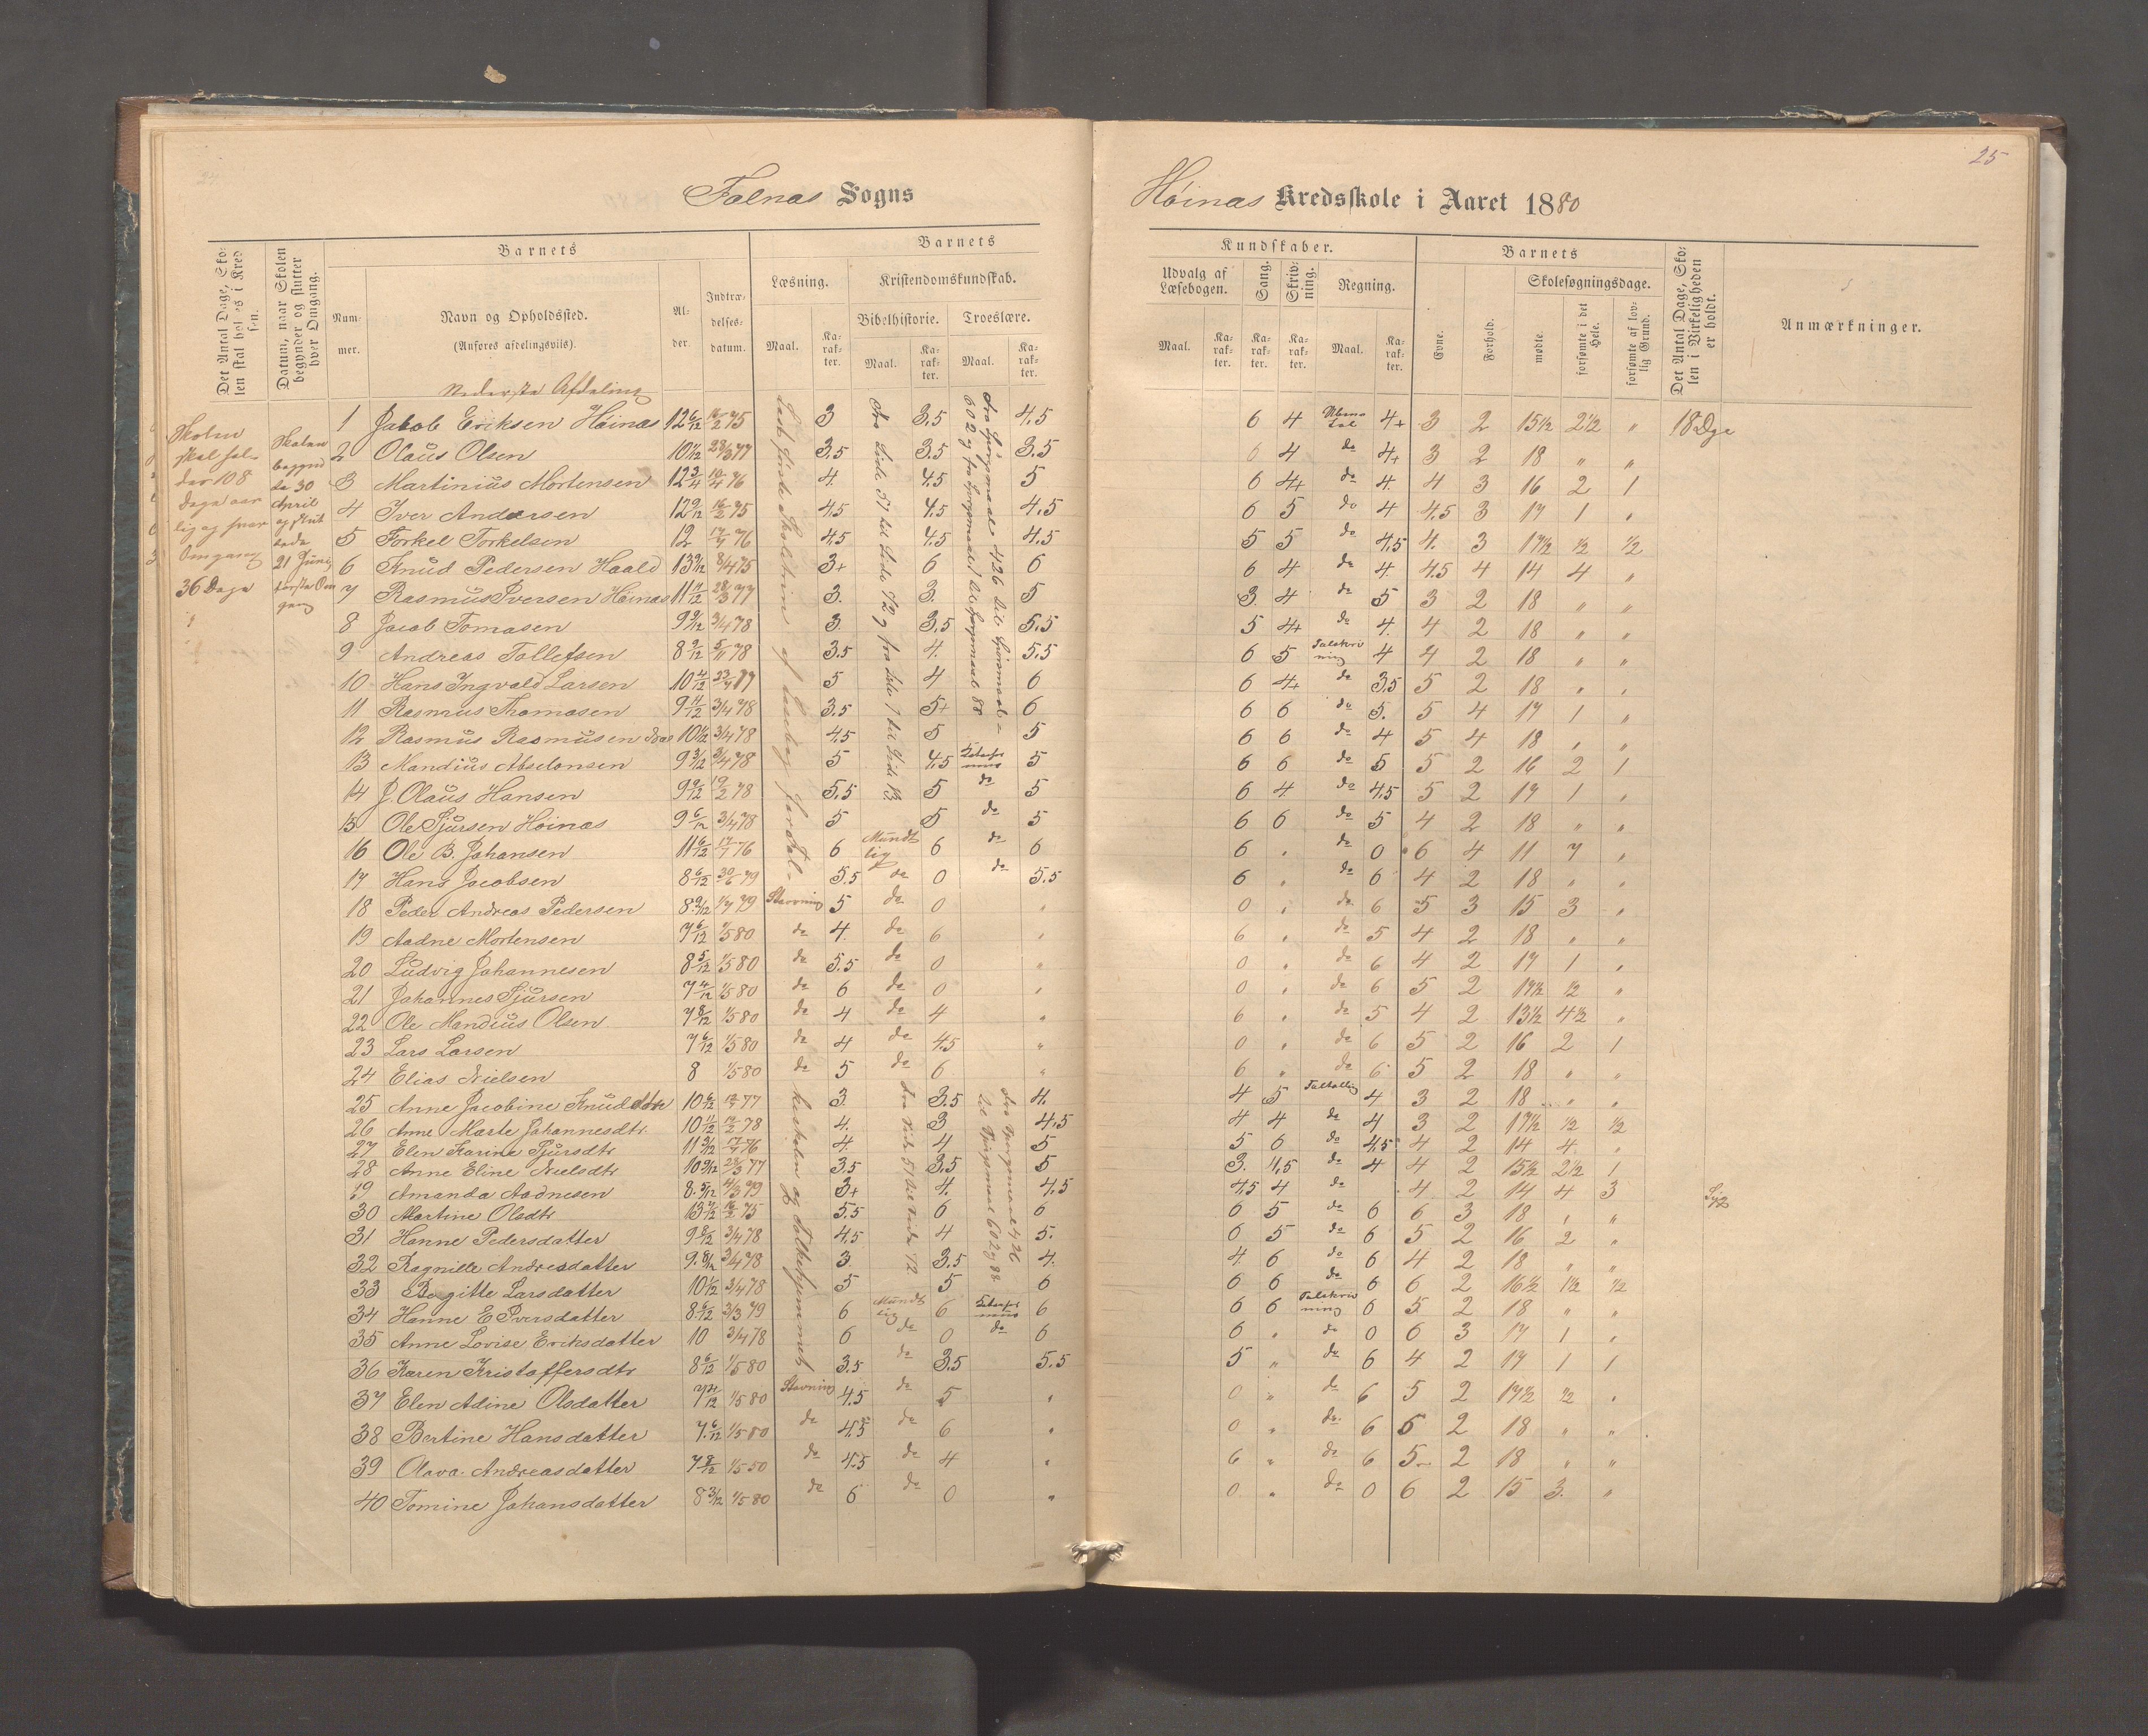 25
Falnæs Sogns
Høinæs Kredsskole i Aaret 1880
Det Antal Dage, Skolen skal holdes i Kredsen.
Datum, naar Skolen begynder og slutter hver Omgang.
Barnets
Nummer.
Navn og Opholdssted.
(Anføres afdelingsvis).
Alder.
Indtrædelsesdatum.
Barnets
Læsning.
Kristendomskundskab.
Bibelhistorie.
Troeslære.
Maal.
Karakter.
Maal.
Karakter.
Maal.
Karakter.
Kundskaber.
Udvalg af Læsebogen.
Sang.
Skrivning.
Regning.
Maal.
Karakter.
Karakter.
Karakter.
Maal.
Karakter.
Barnets
Evne.
Forhold.
Skolesøgningsdage.
mødte.
forsømte i det Hele.
forsømte af lovlig Grund.
Det Antal Dage, Skolen i Virkeligheden er holdt.
Anmærkninger.
Nederste Afdeling
Skolen
skal hol-
des 108
dage aar
lig og hver
Omgang
36 Dage
Skolen
begynd
te 30
April
og slut
tede
21 Juni,
første Om
gang
1 Jakob Eriksen Høinæs 12 6/12 16/2 75 3 3,5 4,5 6 4 4+ 3 2 15½ 2½ " 18 Dge
2 Olaus Olsen 10 1/12 28/3 77 3.5 3.5 3.5 0 4 do 4+ 3 2 18 " "
3 Martinius Mortensen 4. 4.5 5 6 4+ do 4. 4 3 16 2 1
4 Iver Andersen 12 9/12 16/2 75 4.5 4.5 4,5 6 5 do 4 4.5 3 17 1 "
5 Torkel Torkelsen 12 17/7 76 4.5 4.5 4.5 5 5 do 4,5 4. 3 17½ ½ ½
6 Knud Pedersen Haald 3+ 6 6 6 4 do 4. 4.5 4 14 4 "
7 Rasmus Iversen Høinæs 11 11/12 28/3 77 3. 3. 5 3. 4 do 5 3 2 18 " "
8 Jacob Tomasen 9 9/12 3/4 78 3 3,5 5,5 5 4+ do 4. 4 2 18 " "
9 Andreas Tollefsen 8 9/12 5/11 78 3.5 4. 5.5 6 5 Talskriv
ning 4 4 2 18 " "
10 Hans Ingvald Larsen 5 4 6 6 4+ do 3.5 5 2 18 " "
11 Rasmus Thomasen 9 11/12 3/4 78 3.5 5+ 6 6 6 do 5. 5 4 17 1 "
12 Rasmus Rasmusen 10 1/2 3/4 78 4.5 5 5 6 6 do 4 5 4 18 " "
13 Mandius Abselonsen 9 3/12 3/4 78 5 4,5 5 6 6 do 5 5 2 16 2 1
14 J. Olaus Hansen 9 9/12 19/2 78 5,5 5 do 5 6 4 do 4,5 5 2 17 1 "
15 Ole Sjursen Høinæs 9 6/12 3/4 78 5 5 do 5 6 6 do 5 4 2 18 " "
16 Ole B. Johansen 11 6/12 17/7 76 6 Mundt
lig 6 do 6 6 " do 0 6 4 11 7 "
17 Hans Jacobsen 8 6/12 30/6 79 5.5 do 0 do 5.5 6 " do 6 4 2 18 " "
18 Peder Andreas Pedersen 8 9/12 1/7 79 Stavning 5 do 0 " 0 " do 6 5 3 15 3 "
19 Aadne Mortensen 7 6/12 1/5 80 do 4. do 6 " 6 " do 5 4 2 18 " "
20 Ludvig Johannesen 8 5/12 1/5 80 do 5.5 do 0 " 0 " do 6 4 2 17 1 "
21 Johannes Sjursen 7 4/12 1/5 80 do 6 do 0 " 0 " do 6 5 2 17½ ½ "
22 Ole Mandius Olsen 7 8/12 1/5 80 do 4 do 4 " 6 " do 5 4 2 13½ 4½ "
23 Lars Larsen 7 6/12 1/5 80 do 4 do 4.5 " 0 " do 6 5 2 16 2 1
24 Elias Nielsen 8 1/5 80 do 5 do 6 " 6 " do 6 5 2 18 " "
25 Anne Jacobine Knudsdtr 10 6/12 3. 3.5 4. 4 5 4 3 2 18 " "
26 Anne Marte Johannesdtr. 10 11/12 4. 3 4,5 4 4 do 4 3 2 17½ ½ ½
27 Elen Karine Sjursdtr 11 3/12 17/7 76 4. 4 5 5 6 do 4,5 4 2 14 4 "
28 Anne Eline Nielsdtr 10 9/12 28/3 77 3.5 3.5 5 3. 4,5 do 4 4 2 15½ 2½ 1
29 Amanda Aadnesen 8 5/12 4/3 79 3+ 4. 4.5 4.5 4 do 4 2 14 4 3 Syg
30 Martine Olsdtr 5.5 6 6 6 5 do 6 6 3 18 " "
31 Hanne Pedersdatter 9 8/12 3/4 78 4.5 4 5. 0 5 do 6 5 2 16 2 "
32 Ragnille Andresdatter 9. 8/12 3/4 78 3. 3.5 4. 4. 6 do 6 4 2 18 " "
33 Begitte Larsdatter 10 1/12 3/4 78 5 5 6 6 6 do 6 6 2 16½ 1½ ½
34 Hanne E Iversdatter 8 6/12 3/3 79 6 Mundt
lig 6 6 6 6 Talskriv
ning 6 5 2 18 " "
35 Anne Lovise Eriksdatter 10 3/4 78 6 do 0 do 6 6 " do 0 6 3 17 1 "
36 Karen Kristoffersdtr 8 6/12 1/5 80 3.5 do 3.5 5.5 5 " do 6 4 2 17 1 1
37 Elen Adine Olsdatter 1/5 80 Stavning 4.5 do 5 " 0 " do 6 5 2 17½ ½ "
38 Bertine Hansdatter 7. 6/12 1/5 80 do 4.5 do 6 " 0 " do. 6 6 2 18 " "
39 Olava. Andreasdatter 7 8/12 1/5 50 do 4.5 do 4 " 6 " do 6 5 2 18 " "
40 Tomine Johansdatter 8 3/12 1/5 80 do 6 do 0 " 0 " do 0 6 2 15 3. "